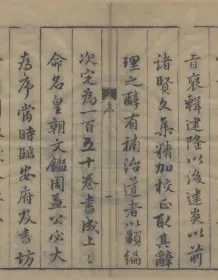 旨裒輯建隆以後建炎以前
諸賢文集精加校正取其辭
理之醇有補治道者以類編
序
次定為一百五十卷書成上〻
命名皇朝文鑑周益公必大
為序當時臨安府及書坊